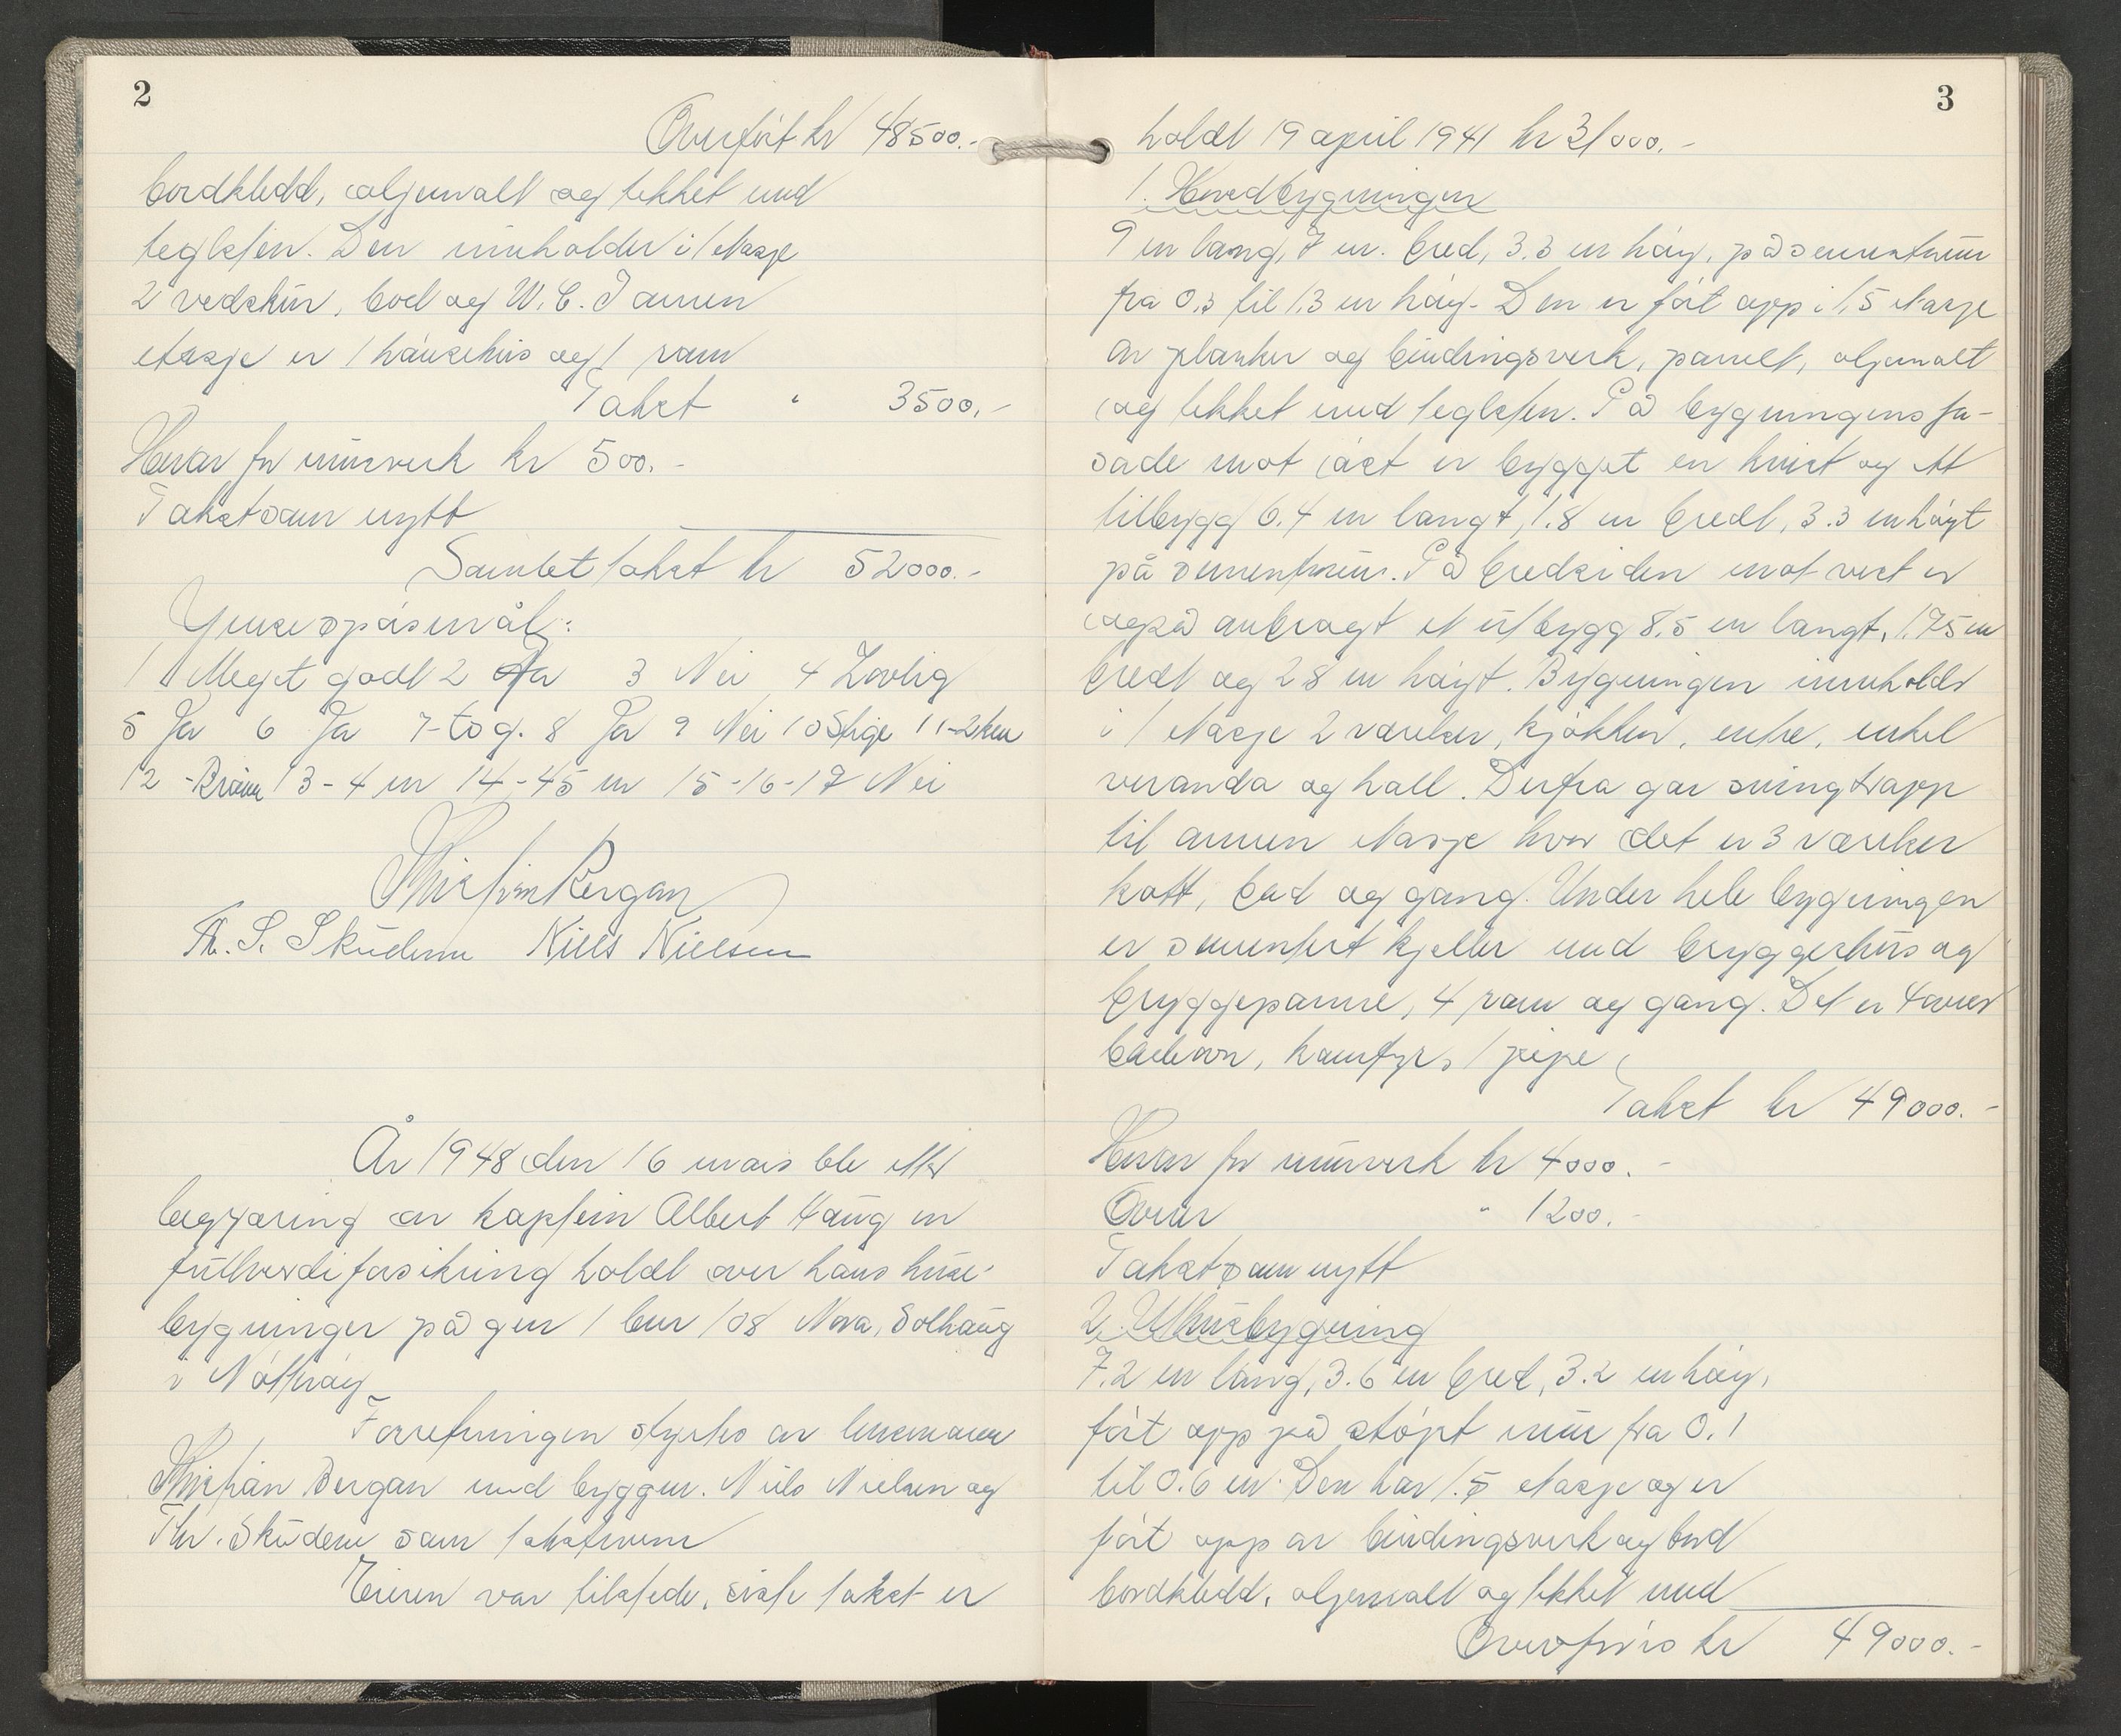 2
Overført kr 48500.-
bordkledd, oljemalt og tekket med
teglsten. Den inneholder i 1 etasje
2 vedskur, bod og W.C. I annen
etasje er 1 hønsehus og 1 rom
Takst " 3500.-
Herav for murverk kr 500.-
Takst som nytt
Samlet takst kr 52000.-
Ymse spørsmål:
1 Meget godt 2 Ja 3 Nei 4 Lovlig
5 Ja 6 Ja 7- to g. 8 Ja 9 Nei 10 Stige 11-2 km
12 - Brønn 13 - 4 m 14 - 45 m 15 -16 -17 Nei
Thistian Bergan
Th. S. Skudem Niels Nielsen
År 1948 den 16 mars ble etter
begjæring av kaptein Albert Haug en
fullverdiforsikring holdt over hans huse-
bygninger på gnr 1 bnr 108 Nova, Solhaug
i Nøtterøy
Forretningen styrtes av lensmann
Thistian Bergan med byggm. Niels Nielsen og
Thr. Skudem som takstmenn
Eieren var tilstede, siste takst er
3
holdt 19 april 1941 kr 31000.-
1. Hovedbygningen
9 m lang, 7 m. bred, 3.3 m høy, på sementmur
fra 0.3 til 1.3 m høy. Den er ført opp i 1,5 etasje
av planker og bindingsverk, panelt, oljemalt
og tekket med teglsten. På bygningens fa-
sade mot øst er bygget en kvist og ett
tilbygg 6.4 m langt, 1.8 m bredt, 3.3 m høyt
på sementmur. På bredsiden mot vest er
også anbragt et utbygg 8.5 m langt, 1.75 m
bredt og 2 8 m høyt. Bygningen inneholder
i 1 etasje 2 værelser, kjøkken, entre, enkel
veranda og hall. Derfra går svingtrapp
til annen etasje hvor det er 3 værelser
kott, bad og gang. Under hele bygningen
er sementert kjeller med bryggerhus og
bryggepanne, 4 rom og gang. Det er 4 ovner
badeovn, komfyr, 1 pipe
Takst kr 49000.-
Herav for murverk kr 4000.-
Ovner " 1200.-
Takst som nytt
2. Uthusbygning
7.2 m lang, 3.6 m bred, 3.2 m høy,
ført opp på støpt mur fra 0.1
til 0.6 m. Den har 1.5 etasje og er
ført opp av bindingsverk og bord
bordkledd, oljemalt og tekket med
Overføres kr 49000.-